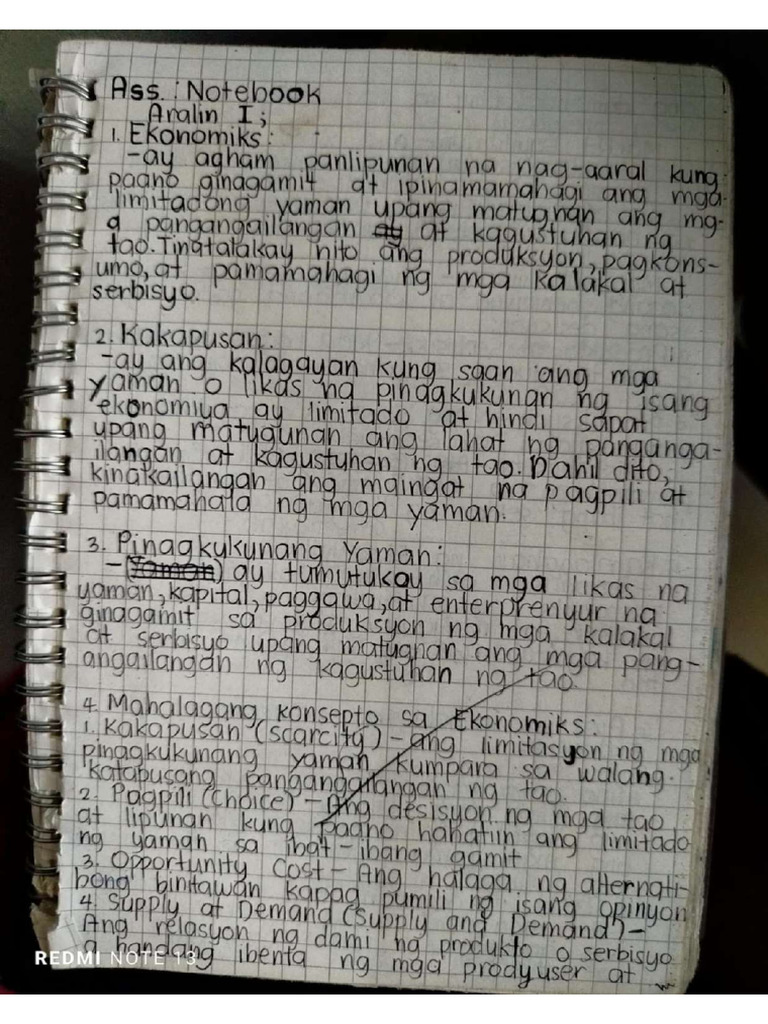 Ass.: Notebook
Aralin I;
1. Ekonomiks:
-ay agham panlipunan na nag-aaral kung
paano ginagamit at ipinamamahagi ang mga
limitadong yaman upang matugnan ang mg-
a pangangailangan at kagustuhan ng
tao. Tinatalakay nito ang produksyon, pagkons-
umo, at pamamahagi ng mga kalakal at
serbisyo.
2. Kakapusan:
-ay ang kalagayan kung saan ang mga
yaman o likas na pinagkukunan ng isang
ekonomiya ay limitado at hindi sapat
upang matugunan ang lahat ng panganga-
ilangan at kagustuhan ng tao. Dahil dito,
kinakailangan ang maingat na pagpili at
pamamahala ng mga yaman.
3. Pinagkukunang Yaman:
- (Yaman) ay tumutukoy sa mga likas na
yaman, kapital, paggawa, at enterprenyur na
ginagamit sa produksyon ng mga kalakal
at serbisyo upang matugnan ang mga pang-
angailangan ng kagustuhan ng tao.
4. Mahalagang konsepto sa Ekonomiks:
1. Kakapusan (scarcity) - ang limitasyon ng mga
pinagkukunang yaman kumpara sa walang
katapusang pangangailangan ng tao.
2. Pagpili (Choice) - Ang desisyon ng mga tao
at lipunan kung paano hahatiin ang limitado
ng yaman sa ibat-ibang gamit
3. Opportunity Cost - Ang halaga ng alternati-
bong binitawan kapag pumili ng isang opinyon
4. Supply at Demand (Supply and Demand) -
Ang relasyon ng dami ng produkto o serbisyo
a handang ibenta ng mga prodyuser at
REDMI NOTE 13